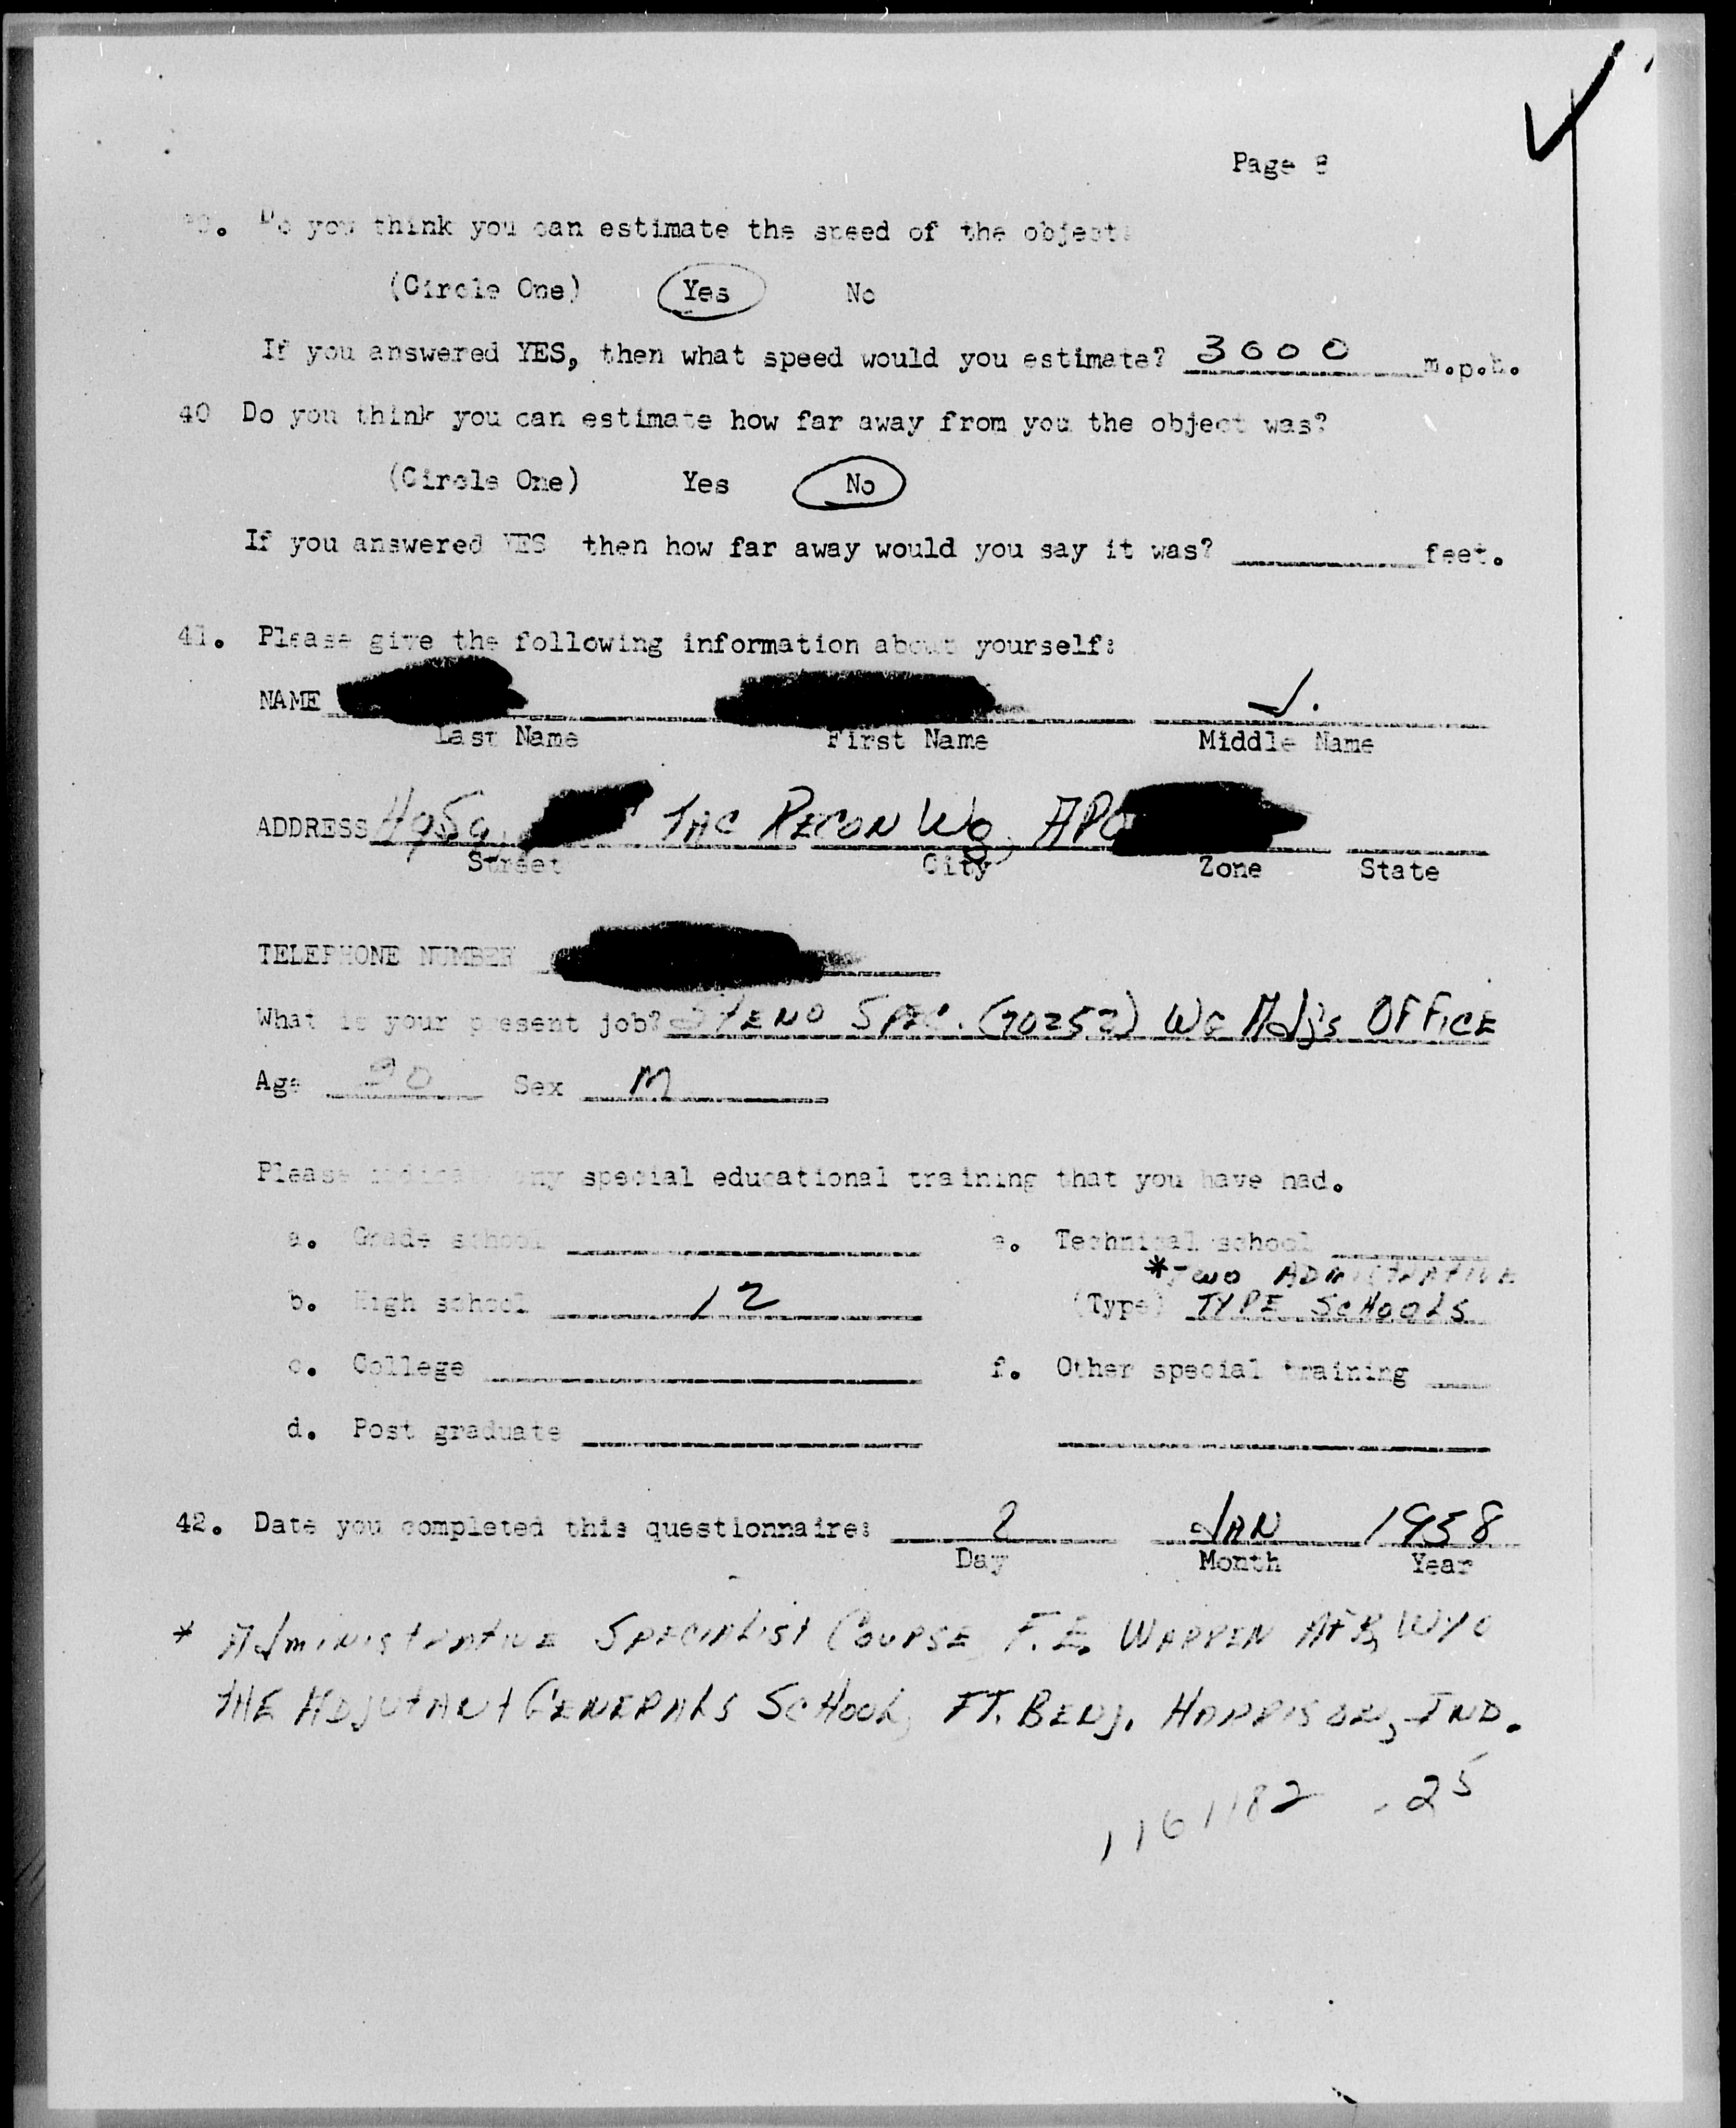 Page 8
39. Do you think you can estimate the speed of the object?
(Circle One) Yes No
If you answered YES, then what speed would you estimate? 3000 m.p.h.
40 Do you think you can estimate how far away from you the object was?
(Circle One) Yes No
If you answered YES then how far away would you say it was? feet.
41. Please give the following information about yourself:
NAME J.
Last Name First Name Middle Name
ADDRESS TAC RECON Wg, APO
Street City Zone State
TELEPHONE NUMBER
What is your present job? STENO SPEC. (70252) Wg Adj's OFFICE
Age Sex M
Please indicate any special educational training that you have had.
a. Grade school e. Technical school
*TWO ADMINISTRATIVE
b. High school 12 (Type) TYPE SCHOOLS
c. College f. Other special training
d. Post graduate
42. Date you completed this questionnaire: 2 JAN 1958
Day Month Year
* Administrative Specialist Course F.E. WARREN AFB, WYO
THE ADJUTANT GENERALS SCHOOL, FT. BENJ. HARRISON, IND.